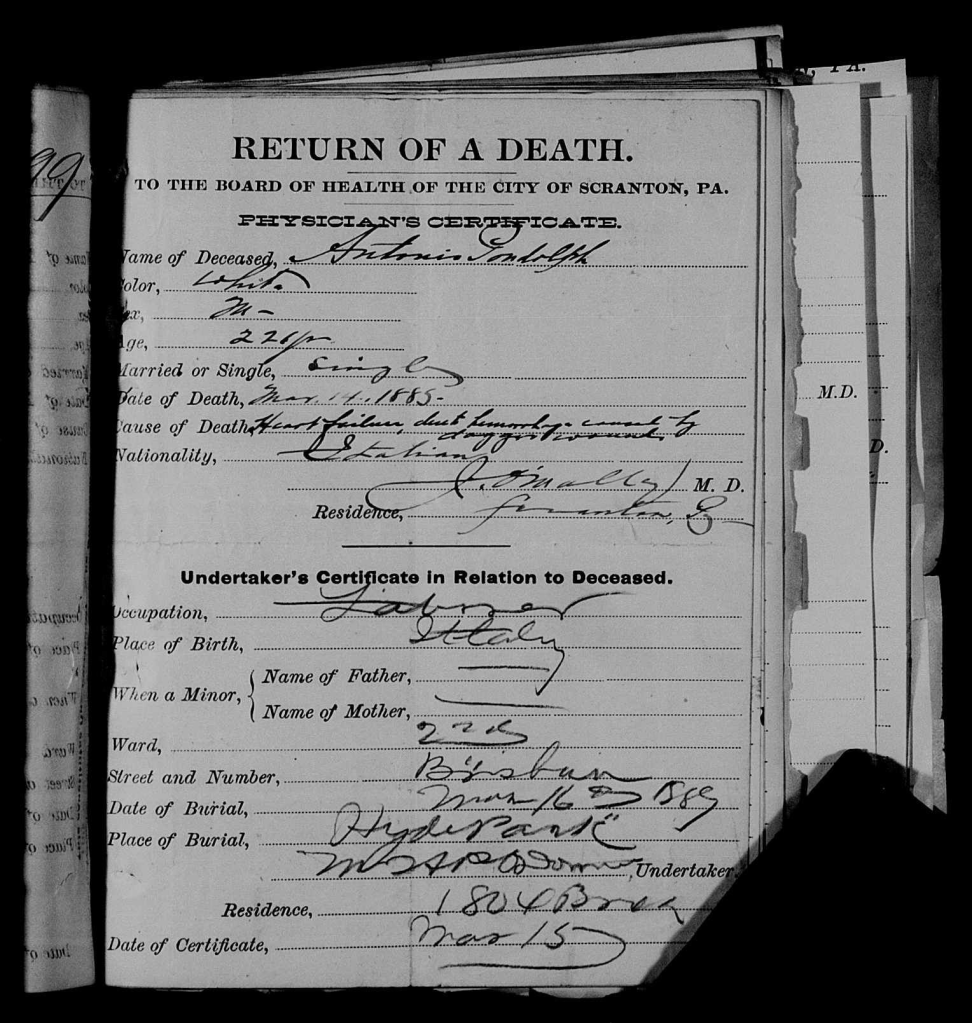 RETURN OF A DEATH.
TO THE BOARD OF HEALTH OF THE CITY OF SCRANTON, PA.
PHYSICIAN'S CERTIFICATE.
Name of Deceased, Antonio
Color, White
Sex, M-
Age, 22 yr
Married or Single, Single
Date of Death, Mar. 14. 1885-
Cause of Death, Heart failure, due to hemorrhage caused by
dagger wound
Nationality, Italian
J. O'Malley M. D.
Residence, Scranton, Pa
Undertaker's Certificate in Relation to Deceased.
Occupation, Laborer
Place of Birth, Italy
When a Minor, { Name of Father,
Name of Mother,
Ward, 2nd
Street and Number,
Date of Burial, Mar 16th
Place of Burial, Hyde Park
Undertaker.
Residence, 1804
Date of Certificate, Mar 15
M.D.
D.
, PA.
99